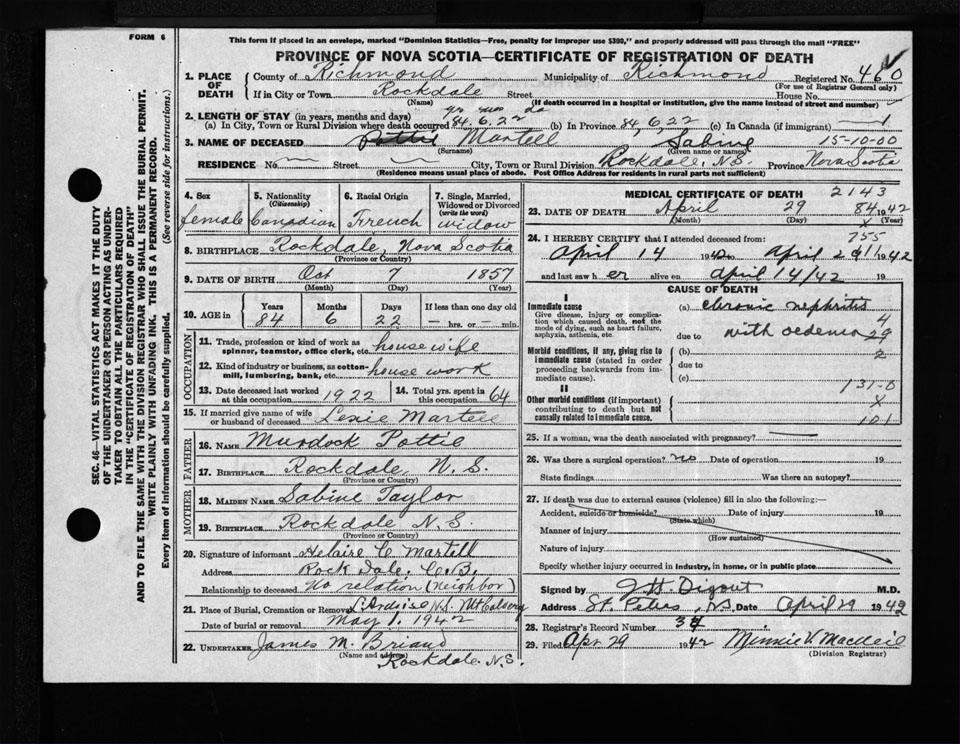 FORM 6
This form if placed in an envelope, marked "Dominion Statistics—Free, penalty for improper use $300," and properly addressed will pass through the mail "FREE"
PROVINCE OF NOVA SCOTIA—CERTIFICATE OF REGISTRATION OF DEATH
1. PLACE OF DEATH County of Richmond Municipality of Richmond Registered No. 460
(For use of Registrar General only)
If in City or Town Rockdale Street House No.
(Name) (If death occurred in a hospital or institution, give the name instead of street and number)
yr mos da
2. LENGTH OF STAY (in years, months and days)
(a) In City, Town or Rural Division where death occurred 84. 6. 22 (b) In Province 84, 6, 22 (c) In Canada (if immigrant)
3. NAME OF DECEASED Pottie Martell Sabine 15-10-00
(Surname) (Given name or names)
RESIDENCE No. Street City, Town or Rural Division Rockdale, N.S. Province Nova Scotia
(Residence means usual place of abode. Post Office Address for residents in rural parts not sufficient)
4. Sex female
5. Nationality (Citizenship) Canadian
6. Racial Origin French
7. Single, Married, Widowed or Divorced (write the word) widow
8. BIRTHPLACE Rockdale, Nova Scotia
(Province or Country)
9. DATE OF BIRTH Oct 7 1857
(Month) (Day) (Year)
10. AGE in Years Months Days If less than one day old
84 6 22 hrs. or min.
OCCUPATION
11. Trade, profession or kind of work as spinner, teamster, office clerk, etc. housewife
12. Kind of industry or business, as cotton-mill, lumbering, bank, etc. house work
13. Date deceased last worked at this occupation 1922
14. Total yrs. spent in this occupation 64
15. If married give name of wife or husband of deceased Lexie Martell
FATHER
16. NAME Murdock Pottie
17. BIRTHPLACE Rockdale N.S.
(Province or Country)
MOTHER
18. MAIDEN NAME Sabine Taylor
19. BIRTHPLACE Rockdale N.S.
(Province or Country)
20. Signature of informant Helaire C Martell
Address Rock Dale, C.B.
Relationship to deceased No relation (Neighbor)
21. Place of Burial, Cremation or Removal L'Ardoise N.S. Mt Calvery
Date of burial or removal May 1, 1942
22. UNDERTAKER James M. Briand
(Name and address) Rockdale N.S.
MEDICAL CERTIFICATE OF DEATH 2143
23. DATE OF DEATH April 29 84 1942
(Month) (Day) (Year)
x
24. I HEREBY CERTIFY that I attended deceased from: 755
April 14 1942 to April 29 1942
and last saw her alive on April 14/42 19
CAUSE OF DEATH
I
Immediate cause
Give disease, injury or complication which caused death, not the mode of dying, such as heart failure, asphyxia, asthenia, etc.
(a) chronic nephritis
4
due to with oedema 29
Morbid conditions, if any, giving rise to immediate cause (stated in order proceeding backwards from immediate cause).
(b) 2
due to
(c) 131-0
II
Other morbid conditions (if important) contributing to death but not causally related to immediate cause.
x
101
25. If a woman, was the death associated with pregnancy?
26. Was there a surgical operation? no Date of operation 19
State findings Was there an autopsy?
27. If death was due to external causes (violence) fill in also the following:—
Accident, suicide or homicide? Date of injury 19
(State which)
Manner of injury
(How sustained)
Nature of injury
Specify whether injury occurred in industry, in home, or in public place
Signed by J H Digout M.D.
Address St. Peters, N.S. Date April 29 1942
28. Registrar's Record Number 34
29. Filed Apr 29 1942 Minnie V. MacNeil
(Division Registrar)
SEC. 46—VITAL STATISTICS ACT MAKES IT THE DUTY
OF THE UNDERTAKER OR PERSON ACTING AS UNDER-
TAKER TO OBTAIN ALL THE PARTICULARS REQUIRED
IN THE "CERTIFICATE OF REGISTRATION OF DEATH"
AND TO FILE THE SAME WITH THE DIVISION REGISTRAR WHO SHALL ISSUE THE BURIAL PERMIT.
WRITE PLAINLY WITH UNFADING INK. THIS IS A PERMANENT RECORD.
Every item of information should be carefully supplied. (See reverse side for instructions.)